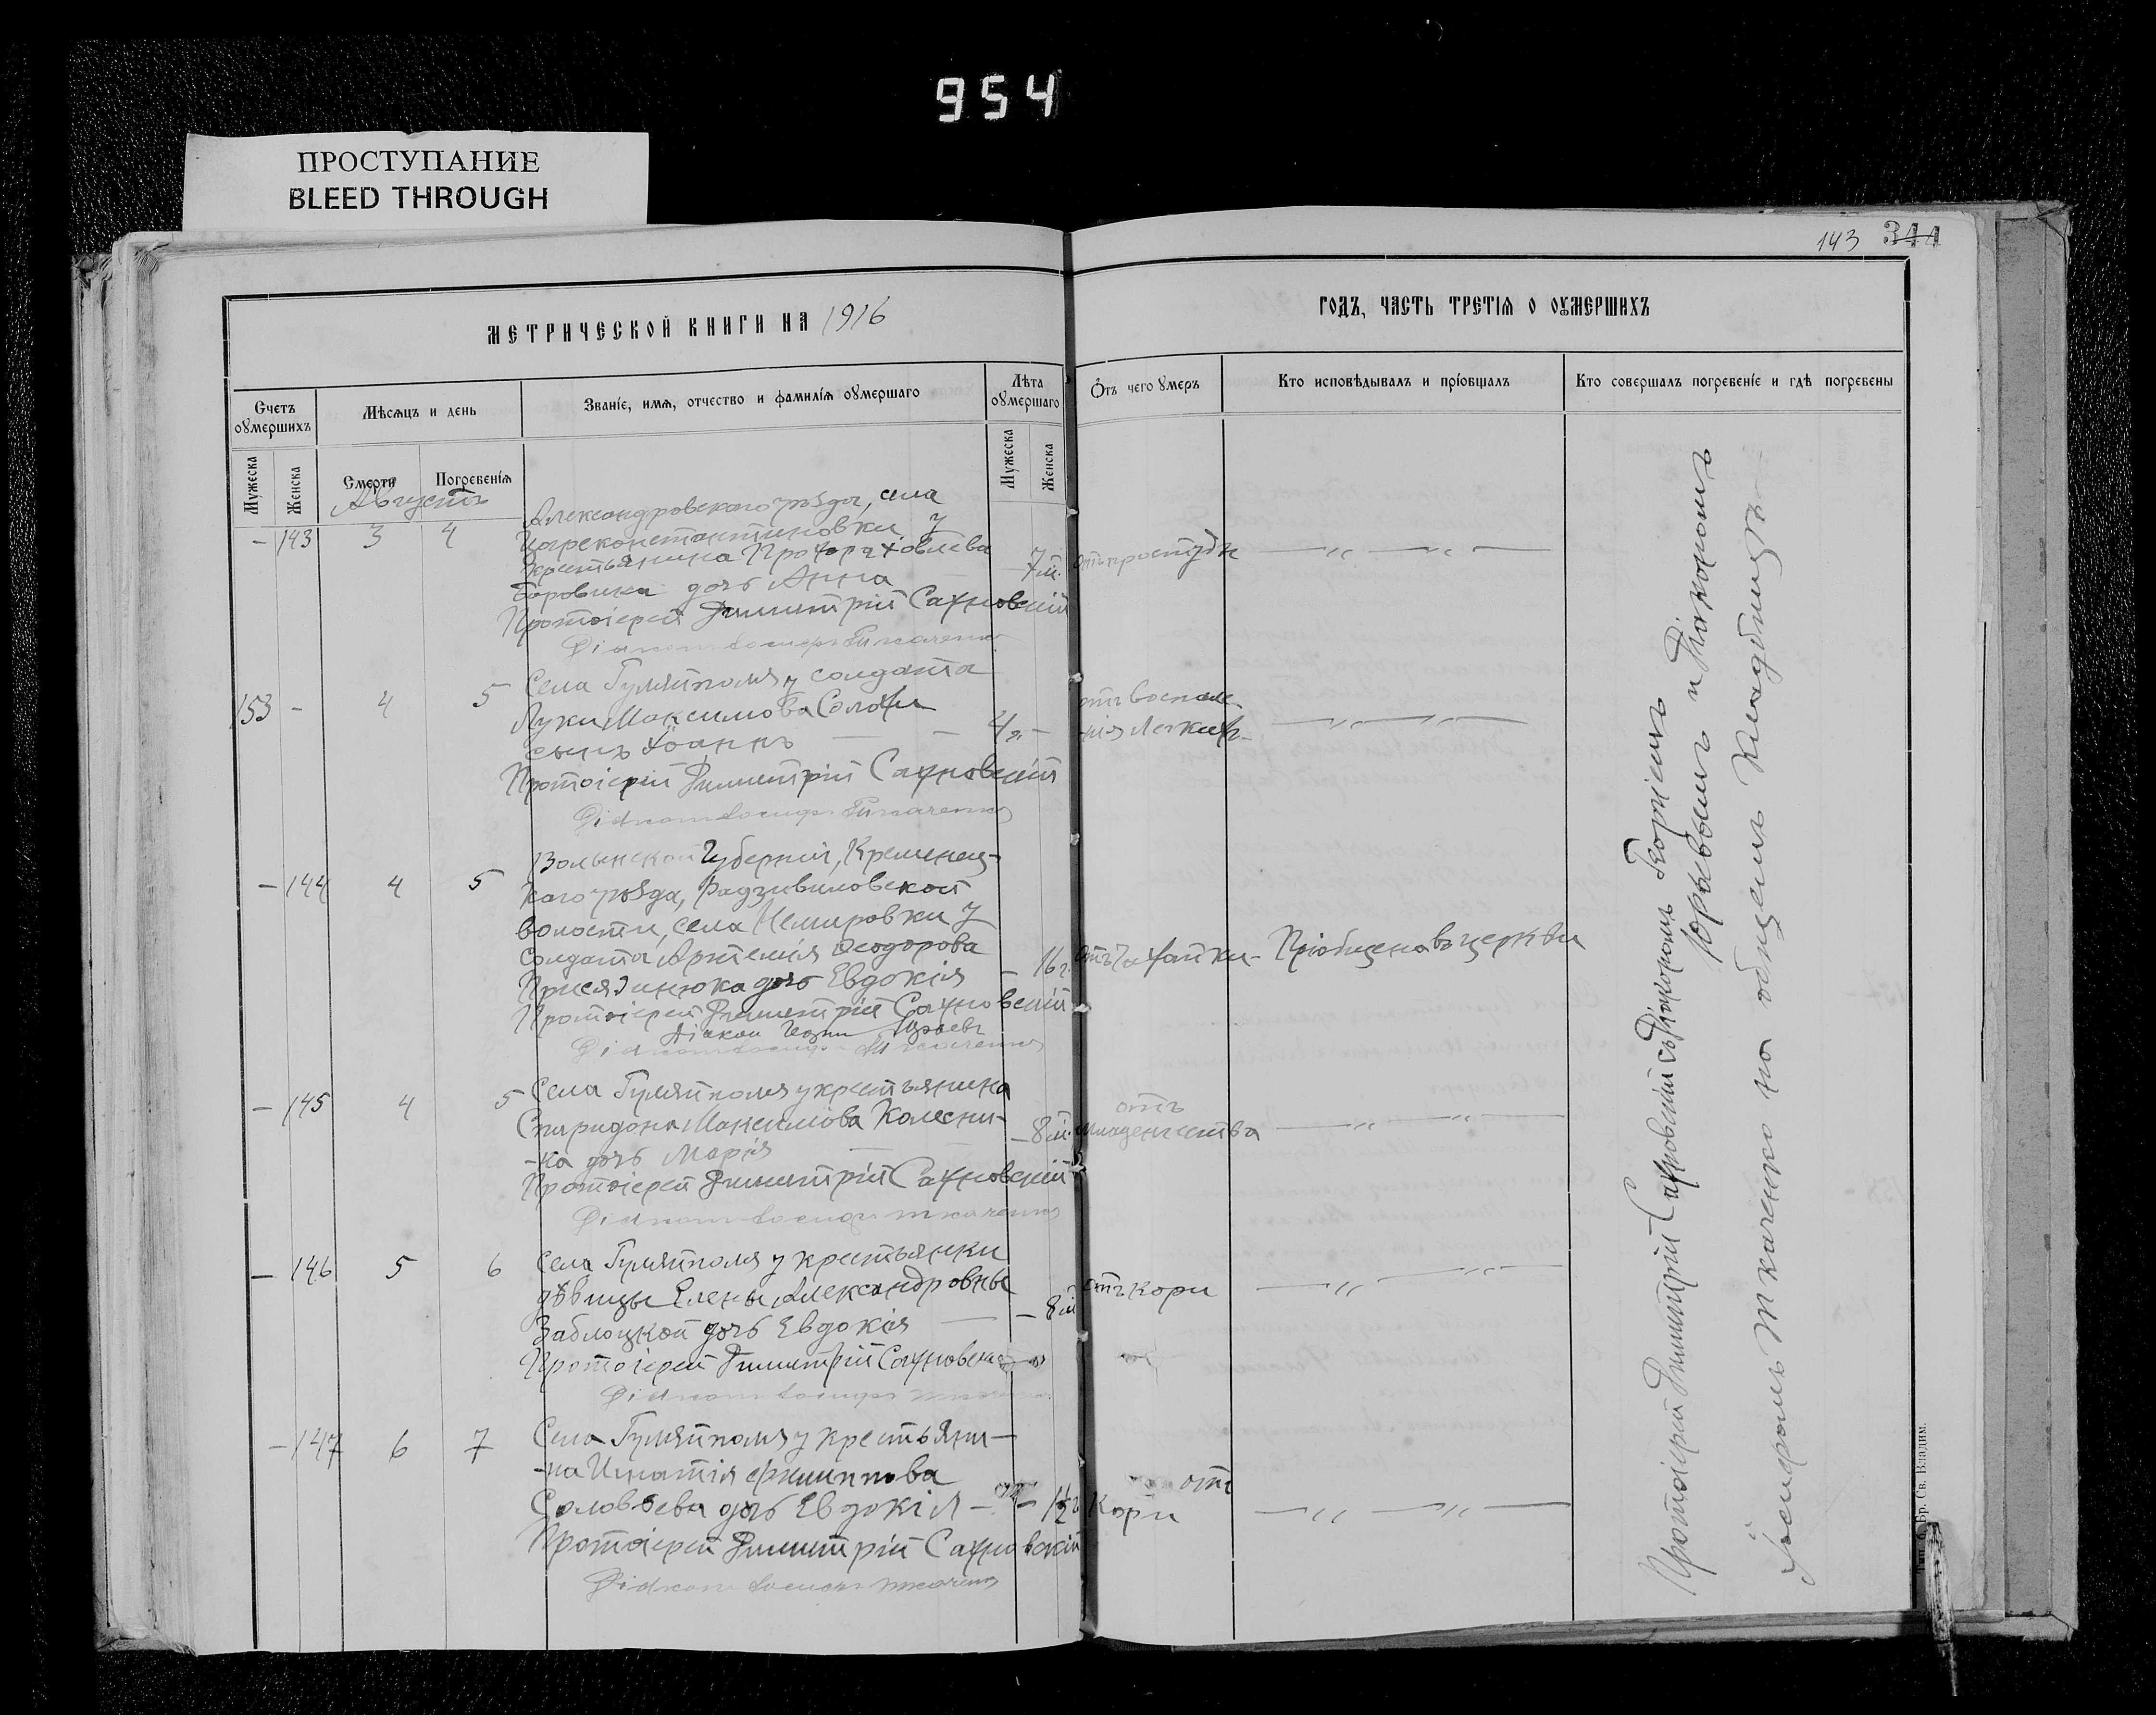 954
ПРОСТУПАНИЕ
BLEED THROUGH
143 344
МЕТРИЧЕСКОЙ КНИГИ НА 1916
ГОДЪ, ЧАСТЬ ТРЕТІЯ О ОУМЕРШИХЪ
Счетъ оумершихъ
Мѣсяцъ и день
Званіе, имя, отчество и фамилія оумершаго
Лѣта оумершаго
Отъ чего умеръ
Кто исповѣдывалъ и пріобщалъ
Кто совершалъ погребеніе и гдѣ погребены
Мужеска
Женска
Смерти
Погребенія
Мужеска
Женска
Августъ
- 143 3 4
Александровскаго уѣзда, села
Цареконстантиновки у
крестьянина Прохора Іовлева
Боровика дочь Анна
7 м. отъ простуды
Протоіерей Димитрій Сахновскій
Діаконъ Іосифъ Ткаченко
153 - 4 5
Села Гуляйполя у солдата
Луки Максимова
сынъ Іоаннъ
отъ воспале-
нія легкихъ
Протоіерей Димитрій Сахновскій
Діаконъ Іосифъ Ткаченко
- 144 4 5
Волынской Губерніи, Кременец-
каго уѣзда, Радзивиловской
волости, села Немировки у
солдата Артемія Ѳеодорова
Присяжнюка дочь Евдокія
- 16 г. отъ чахотки Пріобщена въ церкви
Протоіерей Димитрій Сахновскій
Діакон Юраевъ
Діаконъ Іосифъ Ткаченко
- 145 4 5
Села Гуляйполя у крестьянина
Спиридона Максимова Колесни-
-ка дочь Марія
- 8 м. отъ младенчества
Протоіерей Димитрій Сахновскій
Діаконъ Іосифъ Ткаченко
- 146 5 6
Села Гуляйполя у крестьянки
дѣвицы Елены Александровны
Заблоцкой дочь Евдокія
- 8 м отъ кори
Протоіерей Димитрій Сахновскій
Діаконъ Іосифъ Ткаченко
- 147 6 7
Села Гуляйполя у крестьяни-
-на Игнатія Филиппова
Соловьева дочь Евдокія
- 1½ г отъ
Кори
Протоіерей Димитрій Сахновскій
Діаконъ Іосифъ Ткаченко
Протоіерей Димитрій Сахновскій съ Діакономъ Георгіемъ
Юраевымъ и Діакономъ
Іосифомъ Ткаченко на общемъ кладбищѣ
Бр. Св. Владим.